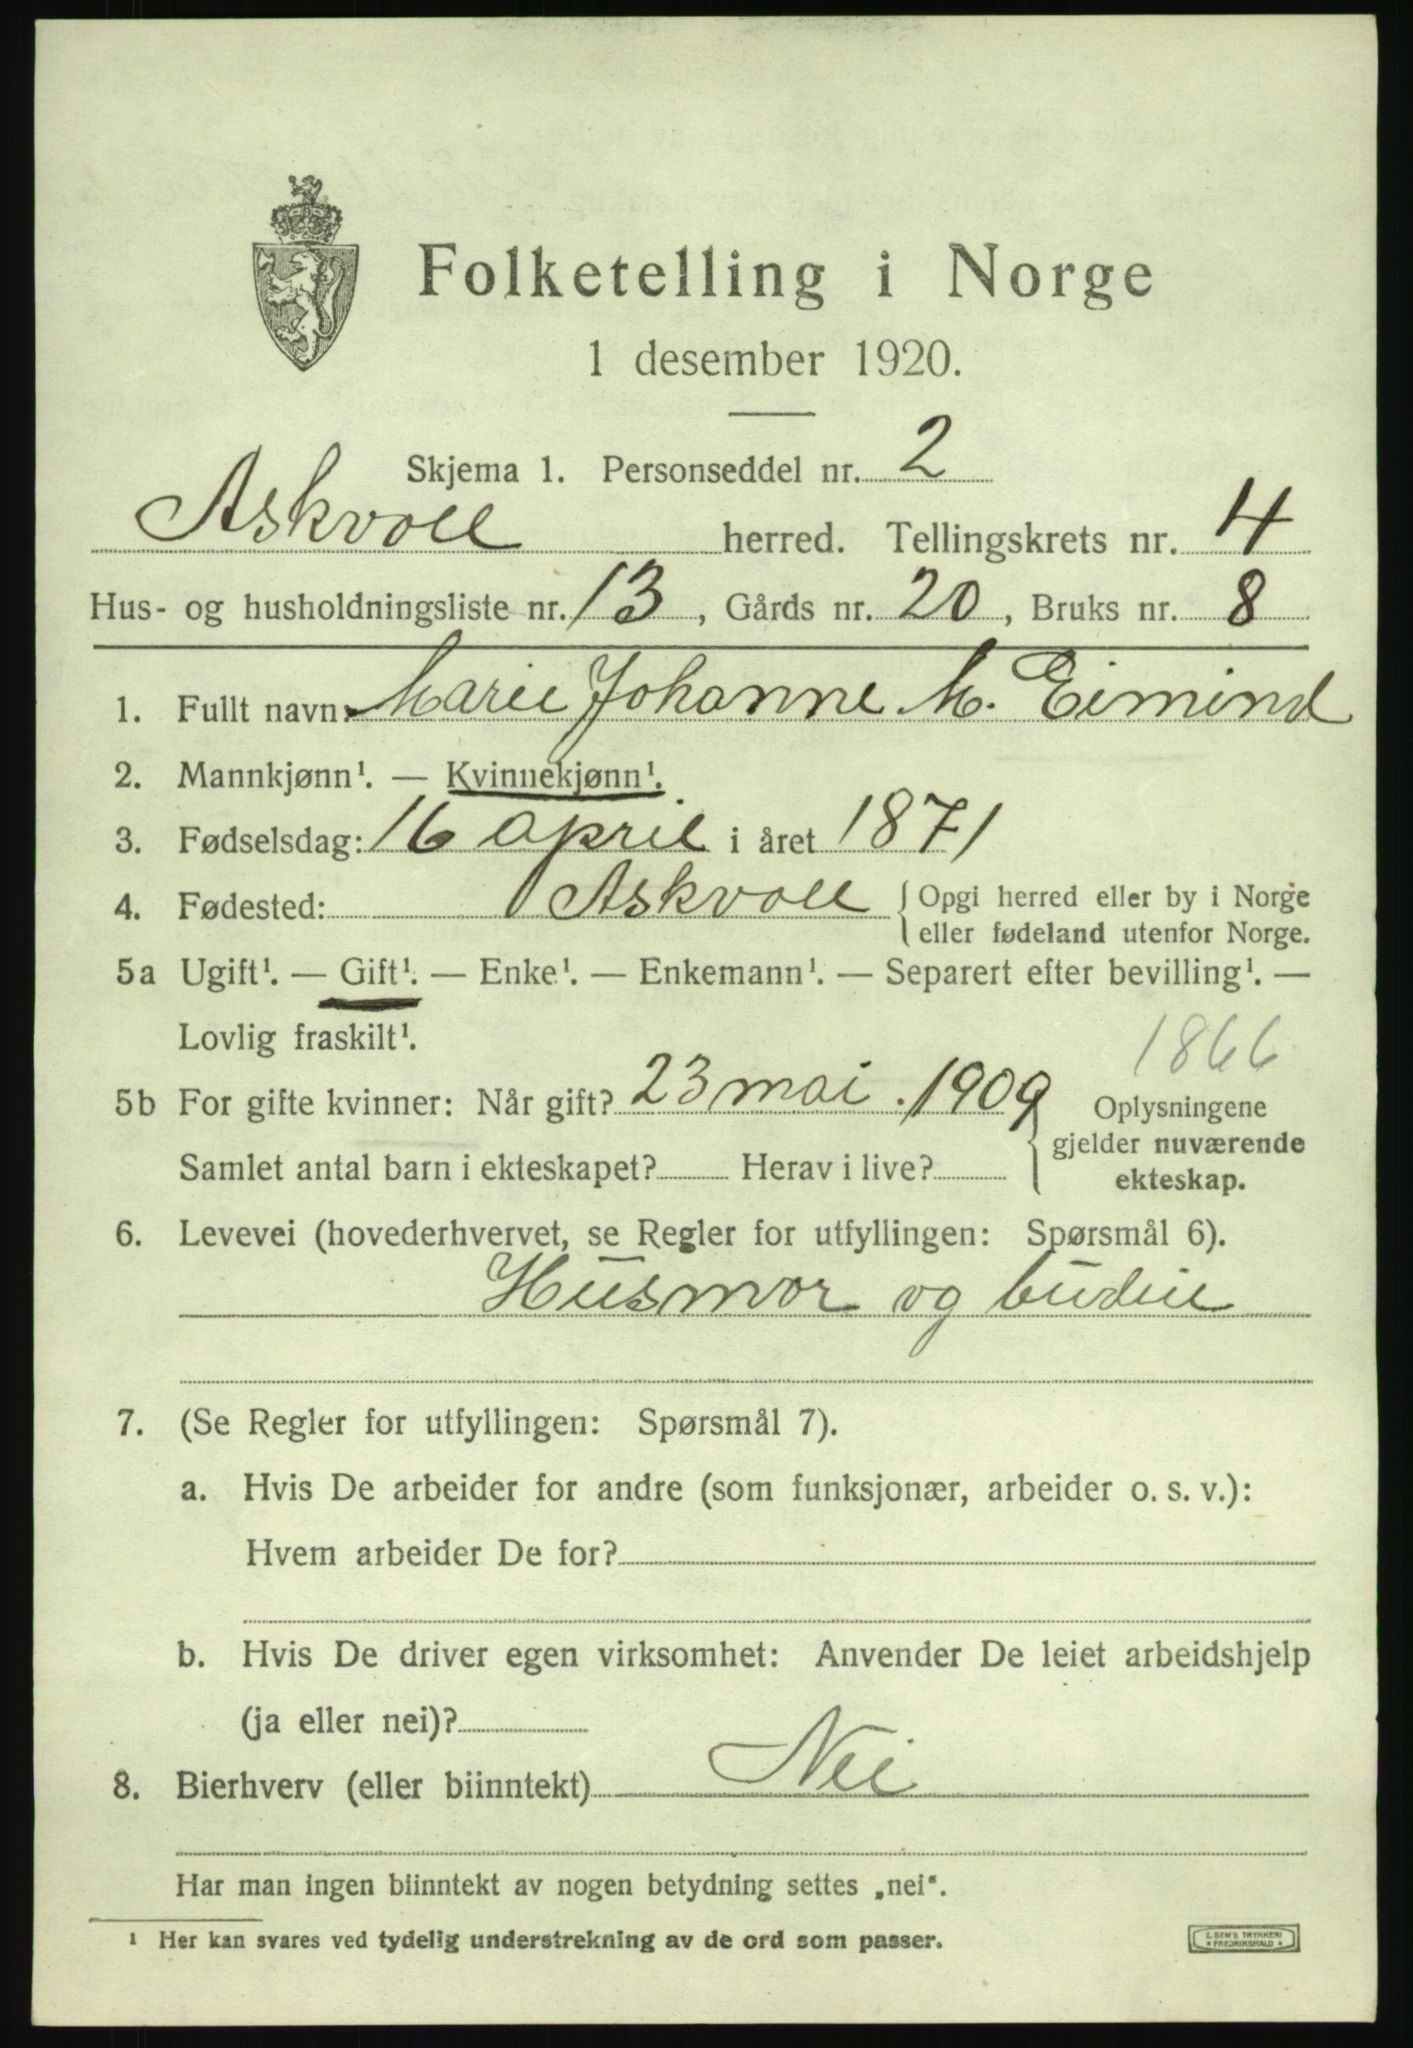 Folketelling i Norge
1 desember 1920.
Skjema 1. Personseddel nr. 2
Askvoll herred. Tellingskrets nr. 4
Hus- og husholdningsliste nr. 13, Gårds nr. 20, Bruks nr. 8
1. Fullt navn: Marie Johanne M. Eimind
2. Mannkjønn¹. — Kvinnekjønn¹.
3. Fødselsdag: 16 april i året 1871
4. Fødested: Askvoll { Opgi herred eller by i Norge
eller fødeland utenfor Norge.
5a Ugift¹. — Gift¹. — Enke¹. — Enkemann¹. — Separert efter bevilling¹. —
Lovlig fraskilt¹.
1866
5b For gifte kvinner: Når gift? 23 mai. 1909 { Oplysningene
gjelder nuværende
Samlet antal barn i ekteskapet? Herav i live?
ekteskap.
6. Levevei (hovederhvervet, se Regler for utfyllingen: Spørsmål 6).
Husmor og budeie
7. (Se Regler for utfyllingen: Spørsmål 7).
a. Hvis De arbeider for andre (som funksjonær, arbeider o. s. v.):
Hvem arbeider De for?
b. Hvis De driver egen virksomhet: Anvender De leiet arbeidshjelp
(ja eller nei)?
8. Bierhverv (eller biinntekt) Nei
Har man ingen biinntekt av nogen betydning settes „nei".
¹ Her kan svares ved tydelig understrekning av de ord som passer.
E. SEM'S TRYKKERI
* FREDRIKSHALD *